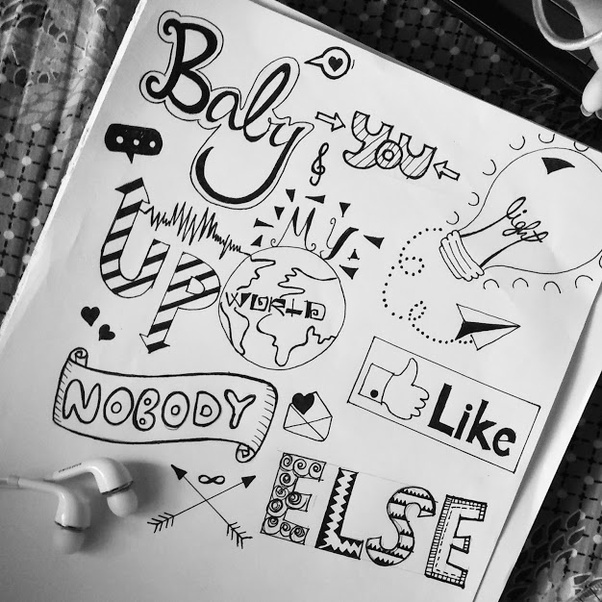 Baby
you
light
UP
WORLD
Like
NOBODY
ELSE